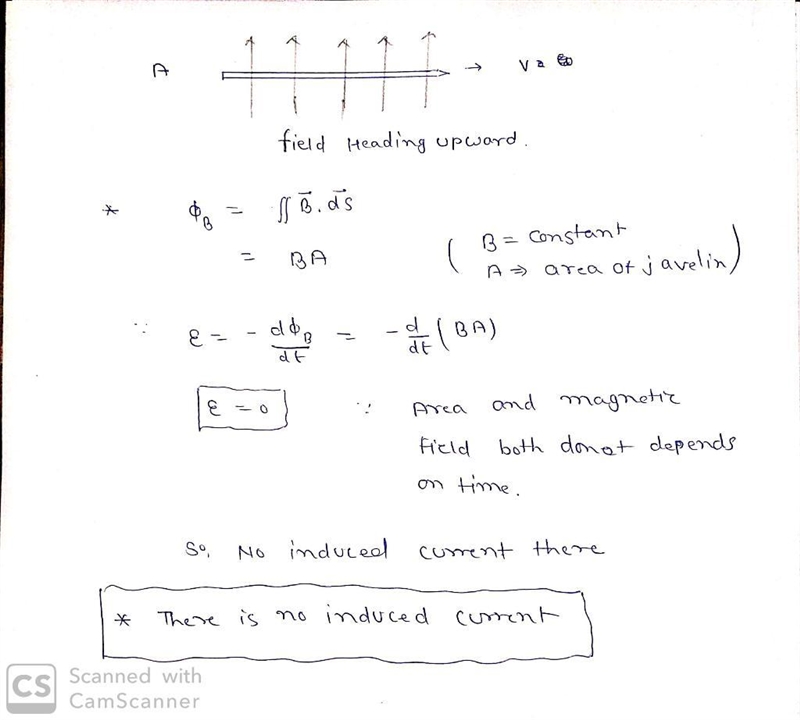 A → V =
field Heading upward.
* ϕ_B = ∬ B⃗ . ds⃗
= BA
( B = constant
A ⇒ area of javelin )
∵ ε = - dϕ_B/dt = - d/dt (BA)
ε = 0 ∵ Area and magnetic
field both donot depends
on time.
So, No induced current there
* There is no induced current
CS Scanned with
CamScanner